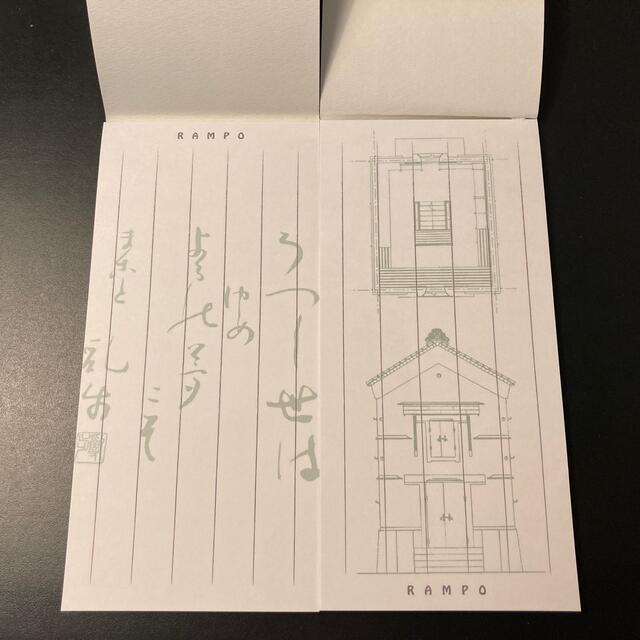 RAMPO
うつし世は
ゆめ
よるの夢
こそ
まこと
乱歩
RAMPO